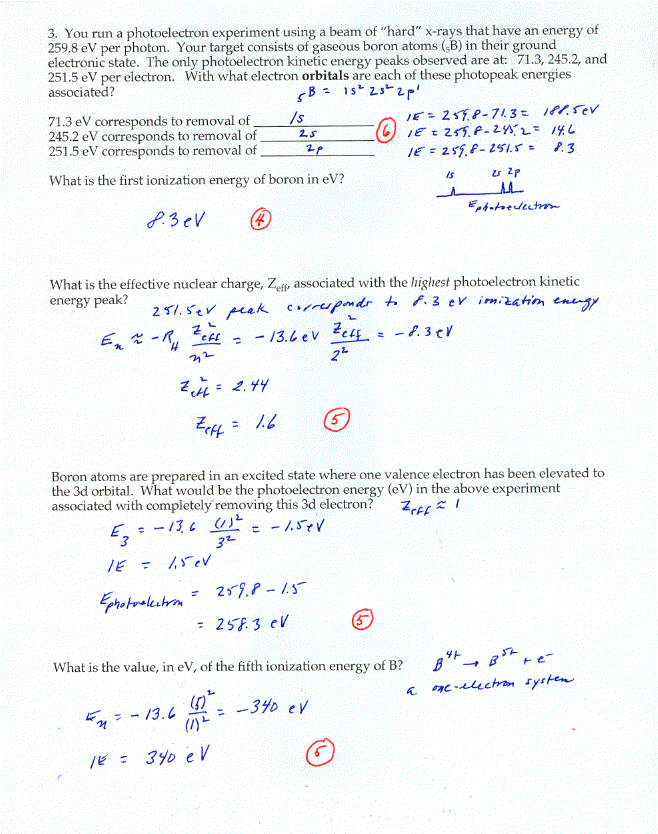 3. You run a photoelectron experiment using a beam of “hard” x-rays that have an energy of
259.8 eV per photon. Your target consists of gaseous boron atoms (₅B) in their ground
electronic state. The only photoelectron kinetic energy peaks observed are at: 71.3, 245.2, and
251.5 eV per electron. With what electron orbitals are each of these photopeak energies
associated?
₅B = 1s² 2s² 2p¹
71.3 eV corresponds to removal of 1s
IE = 259.8 - 71.3 = 188.5 eV
245.2 eV corresponds to removal of 2s
6
IE = 259.8 - 245.2 = 14.6
251.5 eV corresponds to removal of 2p
IE = 259.8 - 251.5 = 8.3
1s 2s 2p
E photoelectron
What is the first ionization energy of boron in eV?
8.3 eV
4
What is the effective nuclear charge, Zeff, associated with the highest photoelectron kinetic
energy peak?
251.5 eV peak corresponds to 8.3 eV ionization energy
En ≈ -RH Z²eff / n² = -13.6 eV Z²eff / 2² = -8.3 eV
Z²eff = 2.44
Zeff = 1.6
5
Boron atoms are prepared in an excited state where one valence electron has been elevated to
the 3d orbital. What would be the photoelectron energy (eV) in the above experiment
associated with completely removing this 3d electron?
Zeff ≈ 1
E₃ = -13.6 (1)² / 3² = -1.5 eV
IE = 1.5 eV
Ephotoelectron = 259.8 - 1.5
= 258.3 eV
5
What is the value, in eV, of the fifth ionization energy of B?
B⁴⁺ → B⁵⁺ + e⁻
a one-electron system
En = -13.6 (5)² / (1)² = -340 eV
IE = 340 eV
5